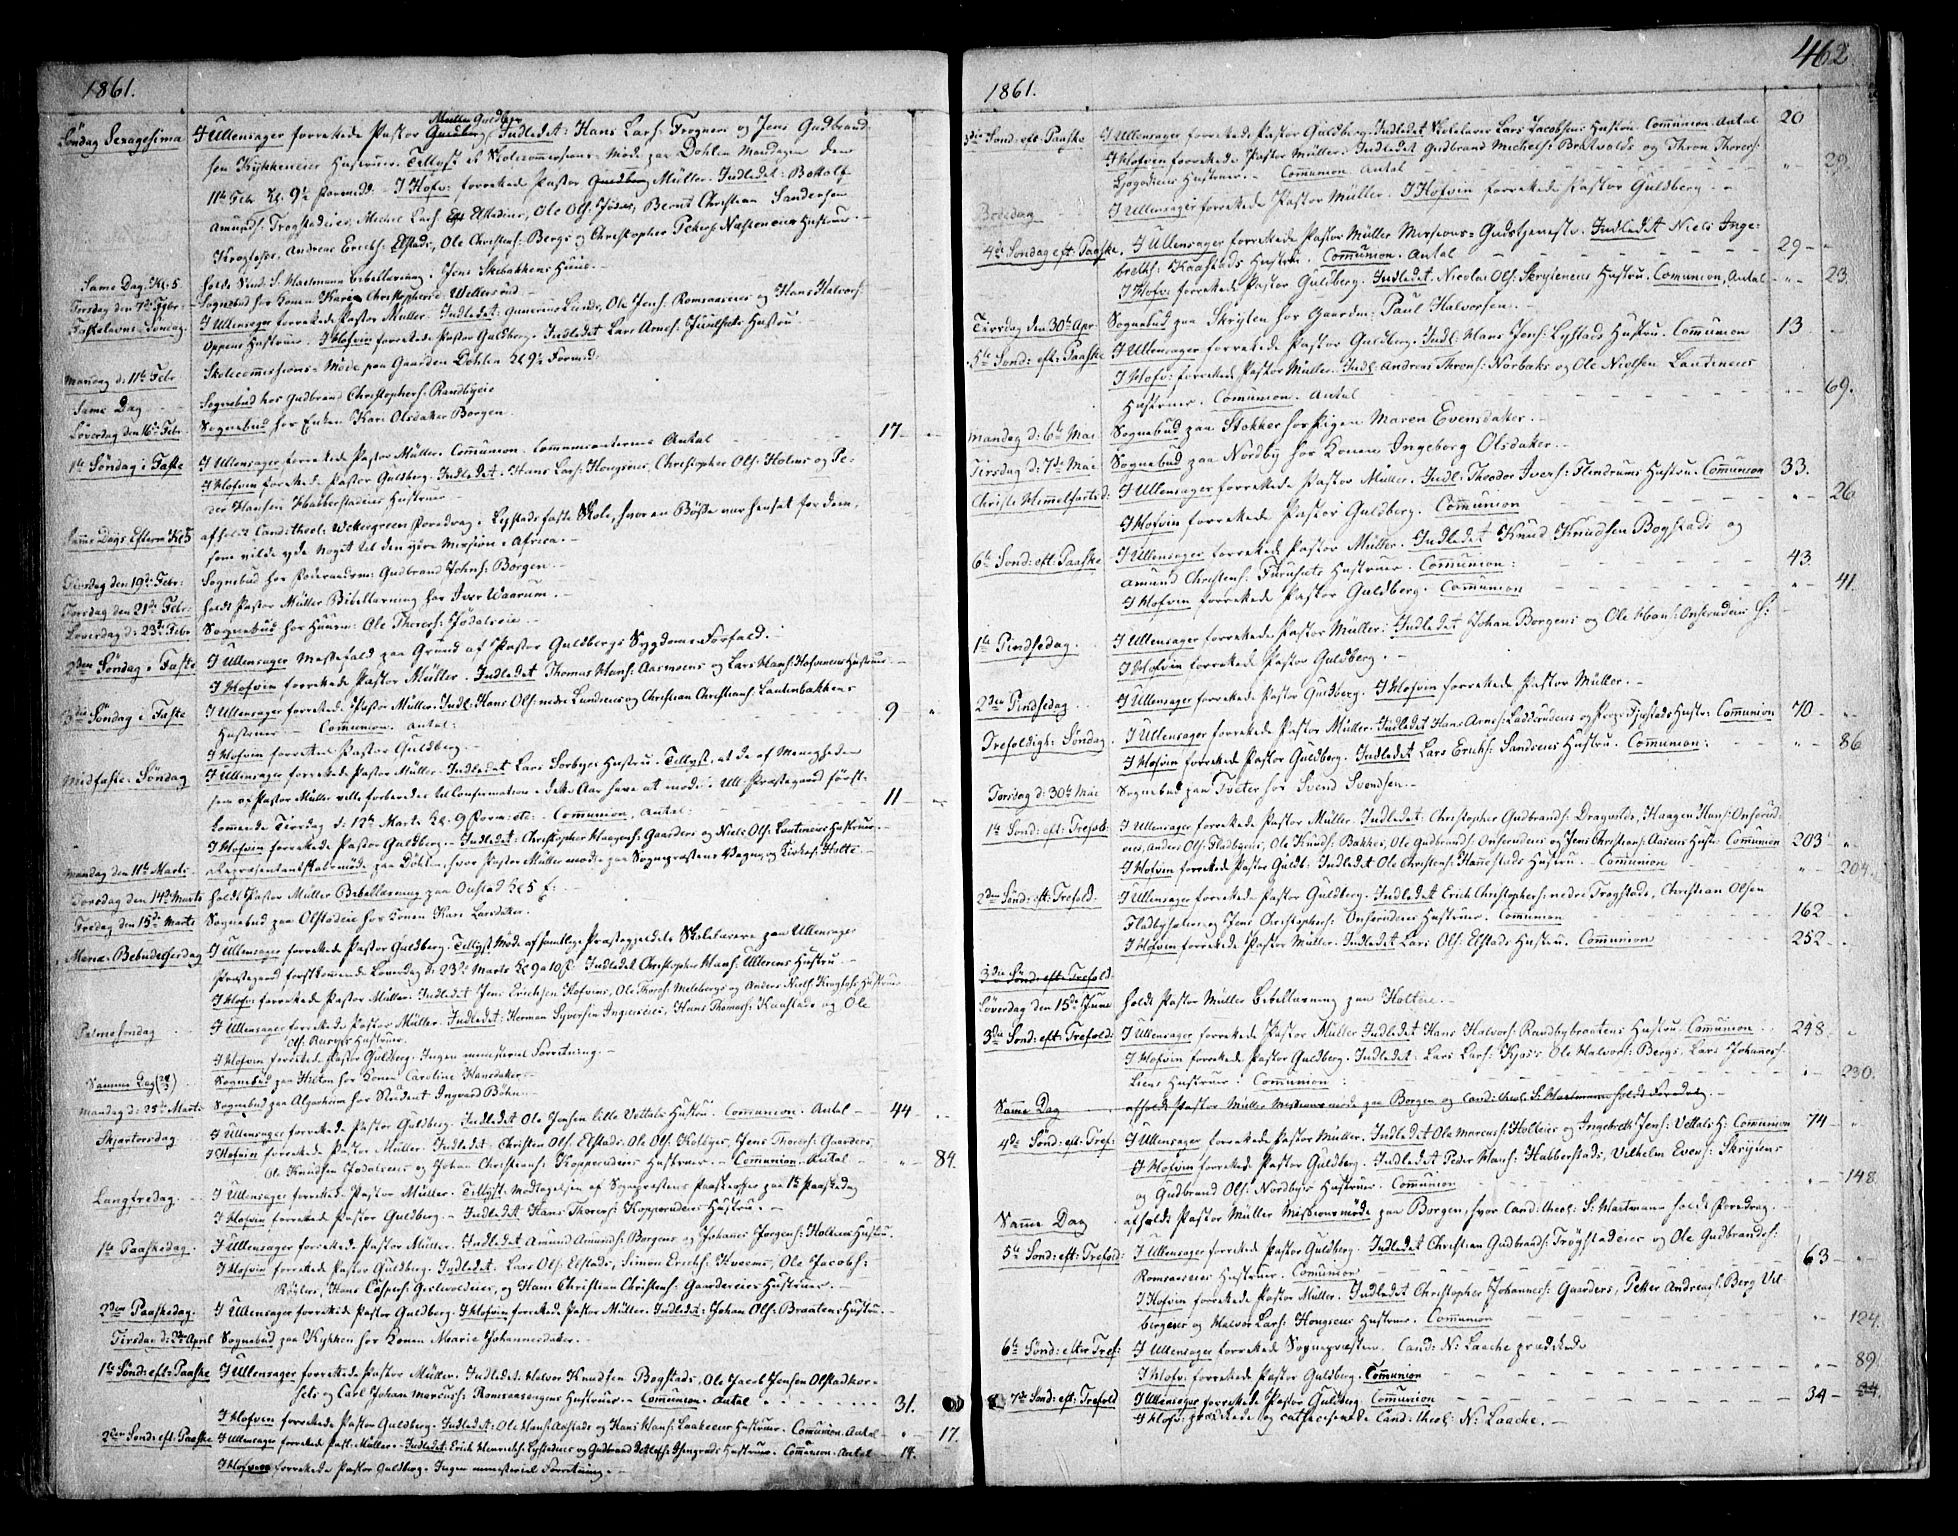 1861.
Söndag Sexagesima I Ullensager forrettede Pastor Guldberg Müller Guldberg. Indledet: Hans Lars: Frogner og Jens Gudbrand-
sen Hustruer. Tillyst et Skolecommissions-Møde paa Dohlen Mandagen den
11te Febr Kl. 9½ Formidd. I Hofv: forrettede Pastor Guldberg Müller. Indledet:
Amunds: Trogstadeies, Michel Lars: Elstadeies, Ole Ols: Jødals, Bernt Christian Sandersen
Krogfoss, Andreas Erichs: Elstads, Ole Christens: Bergs og Christopher Peters: Hustruer.
Same Dag. Kl. 5 holdt Cand. S. Wartmann bibellæsning i Jens Skibakkens Huus.
Torsdag den 7de Febr. Sognebud hos Konen Kari Christophersd:
Fastelavns-Søndag. I Ullensager forrettede Pastor Müller. Indledet: Lunds, Ole Jens: Romsaaseies og Hans Halvors:
Oppens Hustruer. I Hofvin forrettede Pastor Guldberg. Indledet Lars Arnes: Hustru
Mandag d: 11te Febr Skolecommissions-Møde paa Gaarden Dohlen Kl 9½ Formid.
Same Dag Sognebud hos Gudbrand Christophers: Randbyeie
Løverdag den 16de Febr Sognebud hos Enken Kari Olsdatter Borgen.
1ste Søndag i Faste I Ullensager forrettede Pastor Müller. Communion. Communicanternes Antal 17
I Hofvin forrettede Pastor Guldberg. Indledet: Hans Lars: Hongseies, Christopher Ols: Holms og Pe-
der Hansen Habberstadeies Hustruer
Samme Dags Efterm Kl 5 afholdt Cand: theol: Wettergreen Foredrag i Lystad faste Skole, hvor en Bøsse var hensat for dem,
som vilde yde Noget til den ydre Mission i Africa.
Tirsdag den 19de Febr: Sognebud hos Gudbrand Johns: Borgen.
Torsdag den 21de Febr: holdt Pastor Müller Bibellæsning hos Iver Waarum.
Løverdag d: 23de Febr Sognebud hos Huusm: Ole Thores: Jødalseie.
2den Søndag i Faste I Ullensager Messefald paa Grund af Pastor Guldbergs Sygdoms Forfald.
I Hofvin forrettede Pastor Müller. Indledet Thomas Hans: Aasmoens og Lars Hans: Hustruer
3die Søndag i Faste I Ullensager forretted. Pastor Müller. Indl: Hans Ols: nedre Lundeies og Christian Christians: Lautenbakkens
Hustruer. Communion. Antal: 9
I Hofvin forrettede Pastor Guldberg.
Midfaste-Søndag I Ullensager forrettede Pastor Müller. Indledet Lars Sørbyes Hustru. Tillyst, at de af Menigheden
som af Pastor Müller ville forberedes til Confirmation i dette Aar have at møde i Ull: Præstegaard først-
kommende Tirsdag d: 12te Marts Kl. 9 Form: etc. Comunion, Antal 11
I Hofvin forrettede Pastor Guldberg. Indledet: Christopher Haagens: Gaarders og Niels Ols: Lautineies Hustruer.
Mandag den 11te Marts Repræsentantskabsmøde paa Døhlen, hvor Pastor Müller mødte paa Sognepræstens Vegne, og Kirkes: Holte
Torsdag den 14de Marts holdt Pastor Müller Bibellæsning paa Onstad Kl 5 E:
Fredag den 15de Marts Sognebud paa Olstadeie hos Konen Kari Larsdatter.
Mariæ Bebudelsesdag I Ullensager forrettede Pastor Guldberg. Tillyst Møde af samtlige Præstegjeldets Skolelærere paa Ullensager
Præstegaard førstkommende Løverdag d: 23de Marts Kl 9 a 10 F. Indledet Christopher Hans: Ullerens Hustru.
I Hofv: forrettede Pastor Müller. Indledet Jens Erichsen Hofvins, Ole Thores: Melebergs og Anders Niels: Krogfoss Hustruer
Palmesøndag I Ullensager forrettede Pastor Müller. Indledet: Herman Syversen Ingiereies, Hans Thomas: Kaastads og Ole
Ols: Hustruer.
I Hofvin forrettede Pastor Guldberg. Ingen ministeriel Forretning.
Samme Dag (24/3) Sognebud paa Hveton hos Konen Caroline Hansdatter.
Mandag d: 25de Marts Sognebud paa Algarheim hos Student Ingvard Böhn.
Skjærtorsdag I Ullensager forrettede Pastor Guldberg. Indledet Ole Jensen lille Vettals Hustru. Comunion. Antal 44
I Hofvin forrettede Pastor Müller. Indledet: Christen Ols: Elstads, Ole Ols: Holbyes, Jens Thores: Gaarders,
Ole Knudsen Jødalseies og Johan Christians: Kopperudeies Hustruer. Comunion. Antal 84.
Langfredag. I Ullensager forrettede Pastor Müller. Tillyst Modtagelsen af Sognepræstens Paaskeoffer paa 1ste Paaskedag
I Hofvin forrettede Pastor Guldberg. Indledet Hans Thorers: Kopperudeies Hustru.
1ste Paaskedag. I Ullensager forretted. Pastor Müller. Indledet Amund Amunds: Borgens og Johanes Jørgens: Holteies Hustru.
I Hofvin forrettede Pastor Guldberg. Indledet: Lars Ols: Elstads, Simon Erichs: Hveems, Ole Jacobs:
Røglers, Hans Caspers: Gislevoldeies, og Hans Christian Christens: Gaardereies Hustruer.
2den Paaskedag. I Ullensager forrettede Pastor Guldberg. I Hofvin forretted. Pastor Müller. Indledet: Johan Ols: Braatens Hustru.
Tirsdag d: 2den April Sognebud paa Kykken hos Konen Marie Johannesdatter.
1ste Sönd: eft: Paaske I Ullensager forrettede Pastor Müller. Indledet Halvor Knudsen Bogstads, Ole Jacob Jensen Olstadkor-
sets og Carl Johan Marcus: Romsaasengens Hustruer. Comunion. Antal 31.
I Hofvin forrettede Pastor Guldberg. Indledet: Ole Hans: Aastads og Hans Hans: Laakeeies Hustruer. Comunion. Antal 17.
2den Sönd: eft: Paaske I Ullensager forrettede Past: Müller. Indledet: Erich Henrichs: Lystadeies og Gudbrand Detlefs: Hustruer. Comunion. Antal 14.
I Hofvin forrettede Pastor Guldberg. Ingen ministeriel Forretning.
462
1861.
3die Sönd: eft: Paaske I Ullensager forrettede Pastor Guldberg. Indledet Skolelærer Lars Jacobsens Hustru. Communion. Antal 20
I Hofvin forrettede Pastor Müller. Indledet Gudbrand Michels: Brotvolds og Thron Thores:
Hustruer. Comunion Antal 29
Bededag I Ullensager forrettede Pastor Müller. I Hofvin forrettede Pastor Guldberg.
4de Søndag eft: Paaske. I Ullensager forrettede Pastor Müller Missions-Gudstjeneste. Indledet Niels Inge-
breths: Kaastads Hustru. Comunion. Antal 29
I Hofv: forrettede Pastor Guldberg. Indledet. Nicolai Ols: Skryteneies Hustru. Comunion, Antal 23.
Tirsdag den 30te Apr Sognebud paa Skryten hos Gaardm: Paul Halvorsen.
5te Sönd: eft: Paaske I Ullensager forrettede Pastor Guldberg. Indl: Hans Jens: Lystads Hustru. Communion 13
I Hofv: forrettede Pastor Müller. Indl. Andreas Throns: Nordbaks og Ole Nielsen Lautineies
Hustruer. Comunion. Antal 69.
Mandag d: 6te Mai Sognebud paa Stokker hos Pigen Maren Evensdatter.
Tirsdag d: 7de Mai Sognebud paa Nordby hos Konen Ingeborg Olsdatter.
Christi Himmelfartsd: I Ullensager forrettede Pastor Müller. Indl: Theodor Ivers: Flendrums Hustru. Comunion 33.
I Hofvin forrettede Pastor Guldberg. Communion 26
6te Sönd: eft: Paaske I Ullensager forrettede Pastor Müller. Indledet Knud Knudsen Bogstads og
Amund Christens: Furusets Hustruer. Comunion: 43.
I Hofvin forrettede Pastor Guldberg. Comunion 41.
1ste Pindsedag. I Ullensager forrettede Pastor Müller. Indledet Johan Borgens og Ole Hans: Onsrudeies H:
I Hofvin forrettede Pastor Guldberg.
2den Pindsedag I Ullensager forrettede Pastor Guldberg. I Hofvin forrettede Pastor Müller.
Trefoldigh: Søndag. I Ullensager forrettede Pastor Müller. Indledet Hans Arnes: Ladderudeies og Hustr: Comunion 70
I Hofvin forrettede Pastor Guldberg. Indledet Lars Erichs: Sandseies Hustru. Comunion: 86
Torsdag d: 30te Mai Sognebud paa Tveter hos Svend Svendsen.
1ste Sönd: eft: Trefold: I Ullensager forrettede Pastor Müller. Indledet: Christopher Gudbrands: Dragvolds, Haagen Hans: Onsrud-
eies, Anders Ols: Fladbyeies, Ole Knuds: Bakkes, Ole Gudbrands: Onsrudeies og Jens Christians: Aaseies Hustr. Comunion 203
I Hofvin forrettede Pastor Guldb: Indledet Ole Christens: Hannestads Hustru. Comunion 204.
2den Sönd: eft: Trefold. I Ullensager forrettede Pastor Guldberg. Indledet Erich Christophers: nedre Trogstads, Christian Olsen
Fladbyhalens og Jens Christophers: Onsrudeies Hustruer. Comunion 162
I Hofvin forrettede Pastor Müller. Indledet Lars Ols: Elstads Hustru. Communion 252
3die Sönd: eft: Trefold.
Løverdag den 15de Juni holdt Pastor Müller Bibellæsning paa Holteie.
3die Sönd: eft: Trefold: I Ullensager forrettede Pastor Müller Indledet Hans Halvors: Randbybraatens Hustru. Comunion 248
I Hofvin forrettede Pastor Guldberg. Indledet: Lars Lars: Kjos: Ole Halvors: Bergs, Lars Johanes:
Liens Hustruer. Comunion: 230.
Samme Dag afholdt Pastor Müller Missionsmøde paa Borgen og Cand: theol: S. Wartmann holdt Foredrag.
4de Sönd: eft: Tref: I Ullensager forrettede Pastor Müller. Indledet Ole Marcus: Holteies og Ingebreth Jens: Vettals H: Comunion 74
I Hofvin forrettede Pastor Guldberg. Indledet Peder Hans: Habberstads, Vilhelm Evens: Skrytens
og Gudbrand Ols: Nordbyes Hustruer. Comunion 148
Samme Dag afholdt Pastor Müller Missionsmøde paa Borgen, hvor Cand: theol: S: Wartmann holdt Foredrag.
5te Sönd: eft: Trefold: I Ullensager forrettede Pastor Guldberg. Indledet Christian Gudbrands: Trøgstadeies og Ole Gudbrands:
Romsaaseies Hustruer. Comunion 63
I Hofvin forrettede Pastor Müller. Indledet Christopher Johannes: Gaarders, Petter Andreas: Berg Vil-
bergeie og Halvor Lars: Hongseies Hustruer. Comunion 124.
6te Sönd: efter Tref: I Ullensager forrettede Sognepræsten. Cand: N: Laache prædikede
I Hofv: forrettede Pastor Guldberg. Comunion 89
7de Sönd: eft: Trefold I Ullensager forrettede Pastor Guldberg Comunion 34 34.
I Hofv: prædikede og catheciserede Cand: theol: N: Laache.